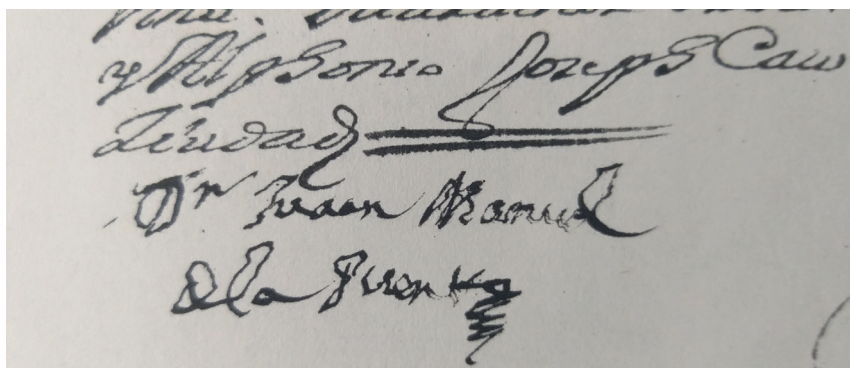 y Alphonso Joseph Cau
Ziudad
Dn Juan Manuel
de la Fuente